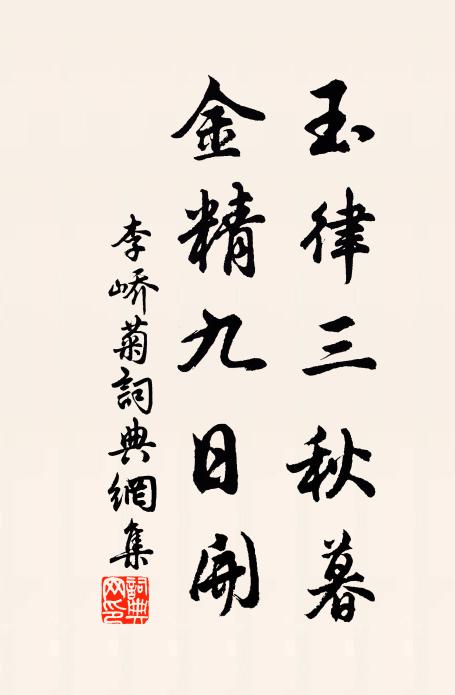 玉律三秋暮
金精九日開
李嶠菊詞典網集
詞典網印